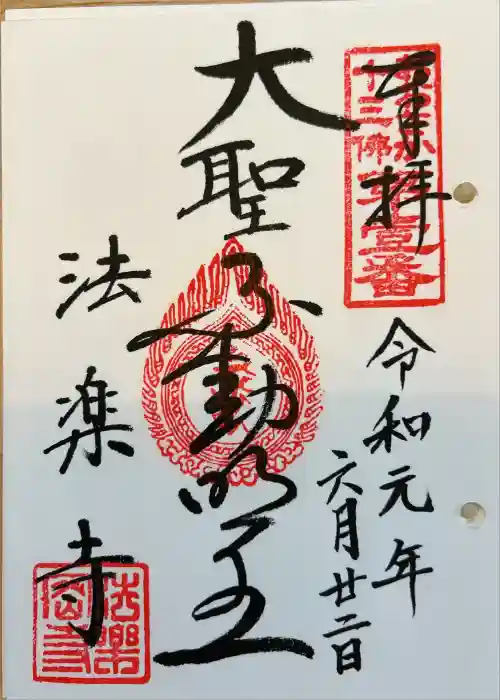 奉拝
十三佛第壹番
令和元年
六月廿二日
大聖不動明王
法楽寺
法樂寺